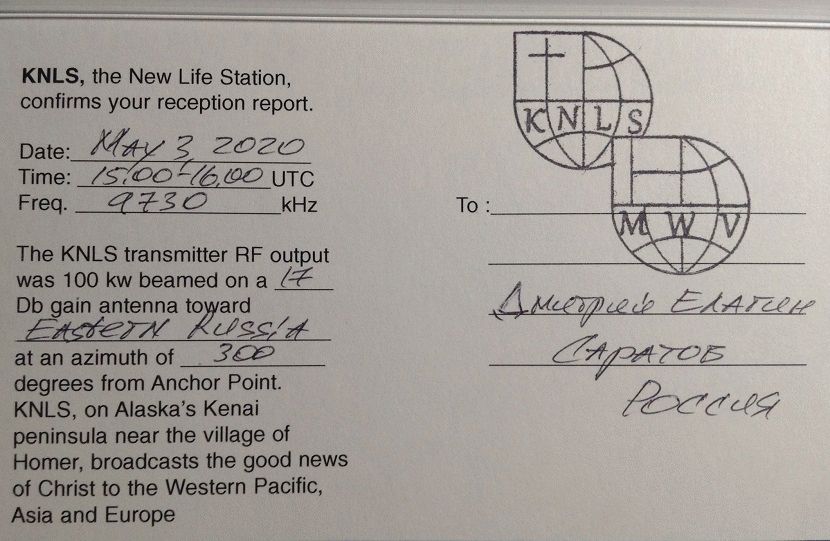 KNLS, the New Life Station,
confirms your reception report.
Date: May 3, 2020
Time: 15:00-16:00 UTC
Freq. 9730 kHz
The KNLS transmitter RF output
was 100 kw beamed on a 17
Db gain antenna toward
Eastern Russia
at an azimuth of 300
degrees from Anchor Point.
KNLS, on Alaska's Kenai
peninsula near the village of
Homer, broadcasts the good news
of Christ to the Western Pacific,
Asia and Europe
KNLS
MWV
To :
Дмитрий Елагин
Саратов
Россия